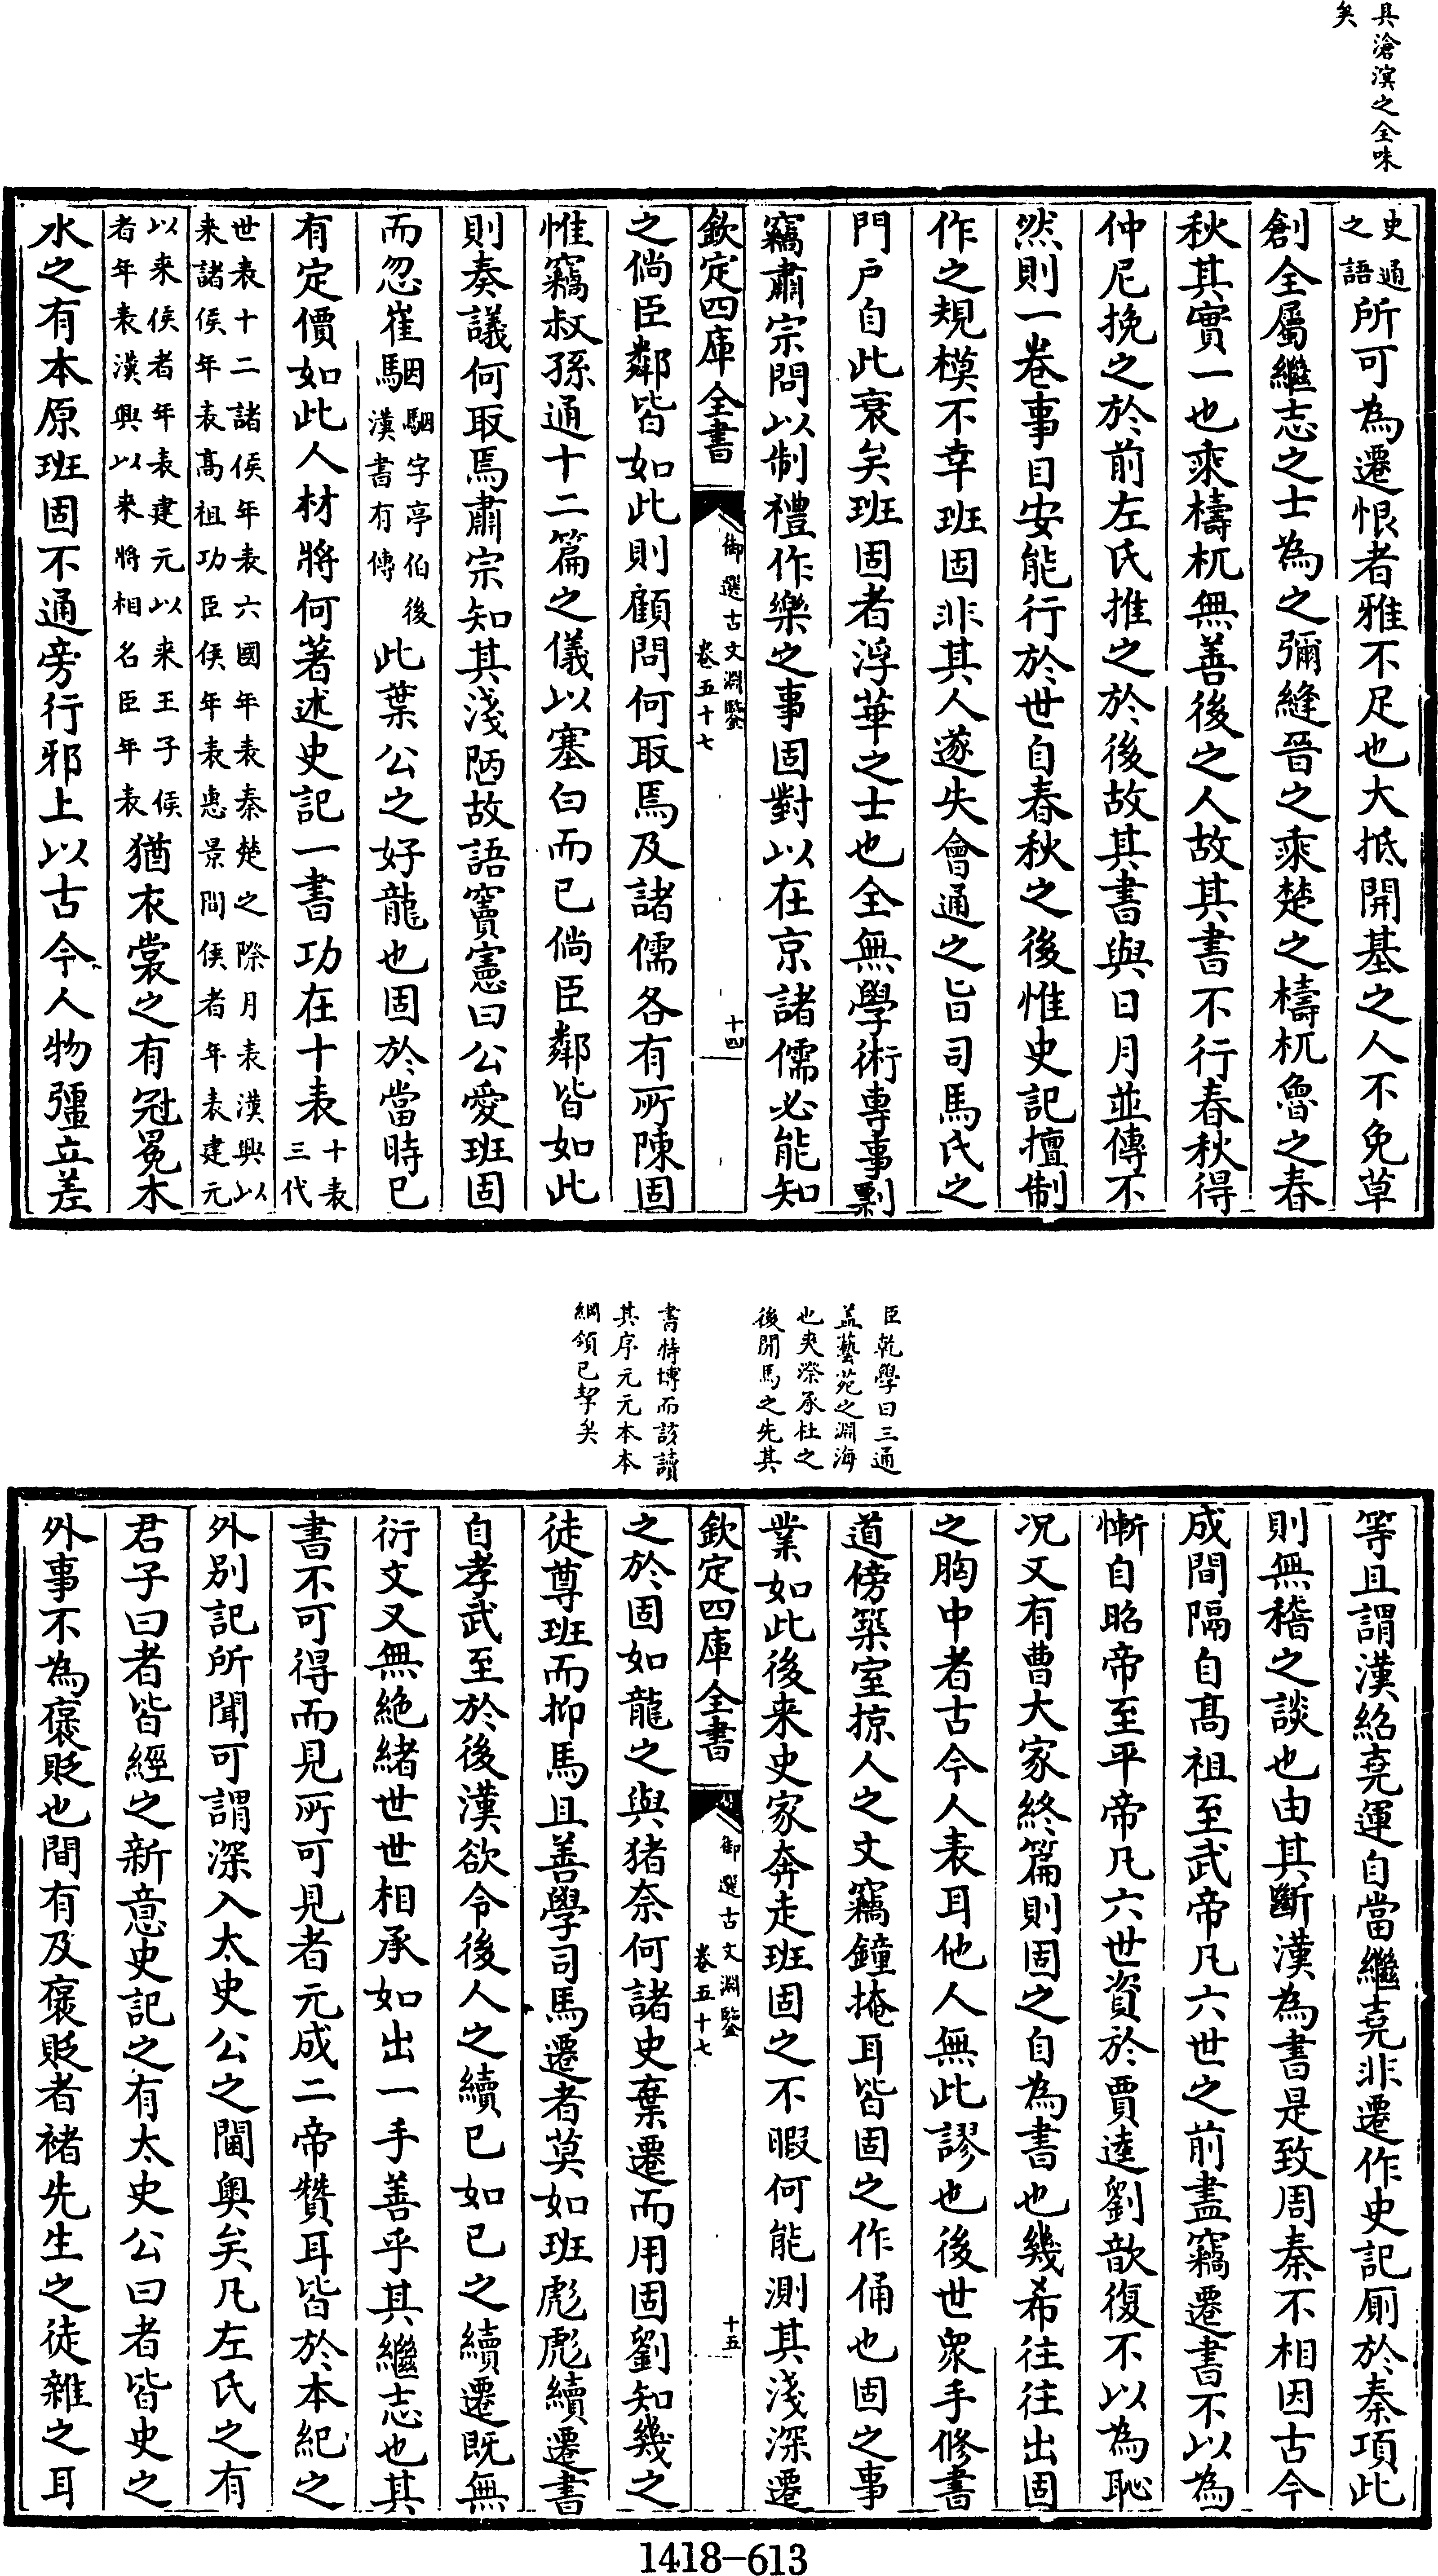 具滄溟之全味
矣
史通
之語所可為遷恨者雅不足也大抵開基之人不免草
創全屬繼志之士為之彌縫晉之乘楚之檮杌魯之春
秋其實一也乘檮杌無善後之人故其書不行春秋得
仲尼挽之於前左氏推之於後故其書與日月並傳不
然則一卷事目安能行於世自春秋之後惟史記擅制
作之規模不幸班固非其人遂失會通之旨司馬氏之
門户自此衰矣班固者浮華之士也全無學術專事剽
竊肅宗問以制禮作樂之事固對以在京諸儒必能知
欽定四庫全書
御選古文淵鑒
卷五十七
十四
之倘臣鄰皆如此則顧問何取焉及諸儒各有所陳固
惟竊叔孫通十二篇之儀以塞白而已倘臣鄰皆如此
則奏議何取焉肅宗知其淺陋故語竇憲曰公愛班固
而忽崔駰駰字亭伯後
漢書有傳此葉公之好龍也固於當時已
有定價如此人材將何著述史記一書功在十表十表
三代
世表十二諸侯年表六國年表秦楚之際月表漢興以
来諸侯年表高祖功臣侯年表惠景間侯者年表建元
以来侯者年表建元以来王子侯
者年表漢興以来將相名臣年表猶衣裳之有冠冕木
水之有本原班固不通旁行邪上以古今人物彊立差
臣乾學曰三通
盖藝苑之淵海
也夾漈承杜之
後開馬之先其
書特博而該讀
其序元元本本
綱領已挈矣
等且謂漢紹堯運自當繼堯非遷作史記厠於秦項此
則無稽之談也由其斷漢為書是致周秦不相因古今
成間隔自高祖至武帝凡六世之前盡竊遷書不以為
慚自昭帝至平帝凡六世資於賈逵劉歆復不以為恥
况又有曹大家終篇則固之自為書也幾希往往出固
之胸中者古今人表耳他人無此謬也後世衆手修書
道傍築室掠人之文竊鐘掩耳皆固之作俑也固之事
業如此後来史家奔走班固之不暇何能測其淺深遷
欽定四庫全書
御選古文淵鑒
卷五十七
十五
之於固如龍之與猪奈何諸史棄遷而用固劉知幾之
徒尊班而抑馬且善學司馬遷者莫如班彪彪續遷書
自孝武至於後漢欲令後人之續已如已之續遷既無
衍文又無絶緒世世相承如出一手善乎其繼志也其
書不可得而見所可見者元成二帝贊耳皆於本紀之
外别記所聞可謂深入太史公之閫奥矣凡左氏之有
君子曰者皆經之新意史記之有太史公曰者皆史之
外事不為褒貶也間有及褒貶者禇先生之徒雜之耳
1418-613